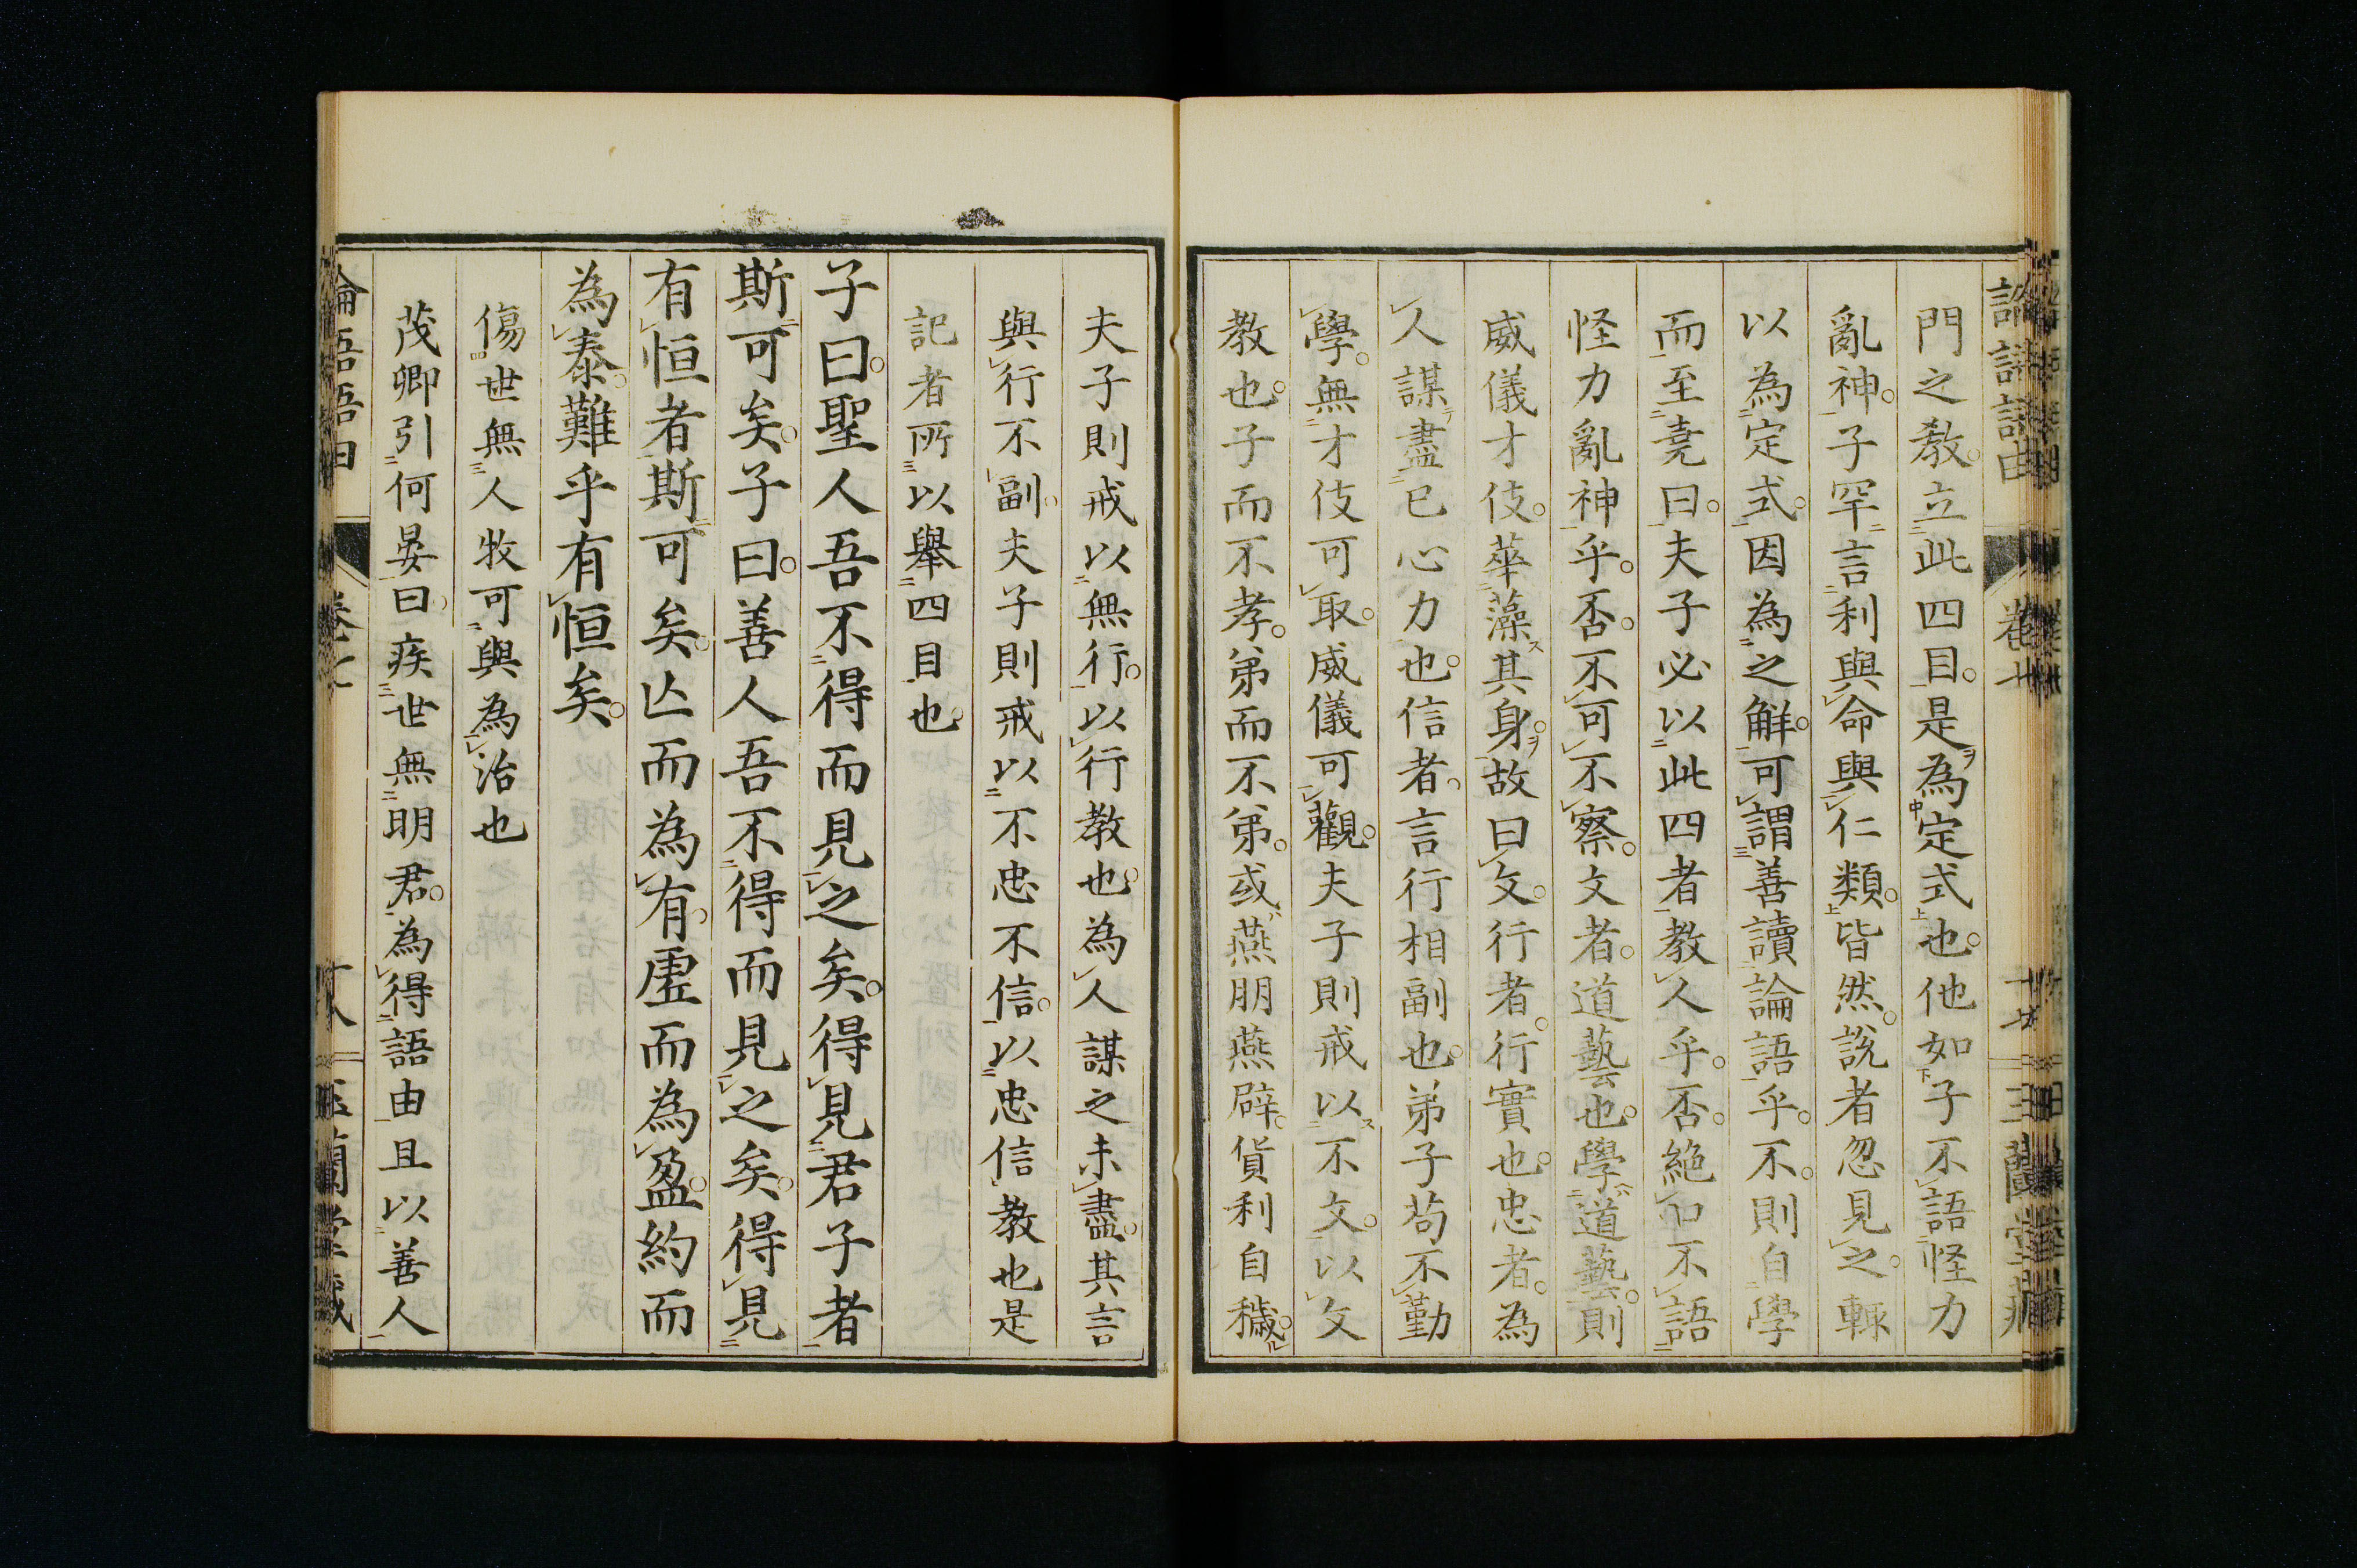 門之教立此四目是為定式也他如子不語怪力
亂神子罕言利與命與仁類皆然說者忽見之輙
以為定式因為之解可謂善讀論語乎不則自學
而至堯曰夫子必以此四者教人乎否絕口不語
怪力亂神乎否不可不察文者道藝也學道藝則
威儀才伎華藻其身故曰文行者行實也忠者為
人謀盡已心力也信者言行相副也弟子苟不勤
學無才伎可取威儀可觀夫子則戒以不文以文
教也子而不孝弟而不弟或燕朋燕辟貨利自穢
夫子則戒以無行以行教也為人謀之未盡其言
與行不副夫子則戒以不忠不信以忠信教也是
記者所以舉四目也
子曰聖人吾不得而見之矣得見君子者
斯可矣子曰善人吾不得而見之矣得見
有恒者斯可矣亾而為有虛而為盈約而
為泰難乎有恒矣
傷世無人牧可與為治也
茂卿引何晏曰疾世無明君為得語由且以善人
論語語由 卷七 十八